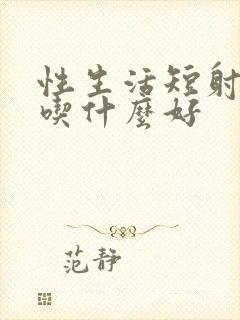 性生活短射
喫什麼好
范静